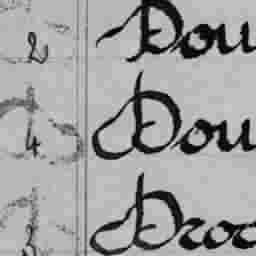 2 Dou
4 Dou
3 Droc